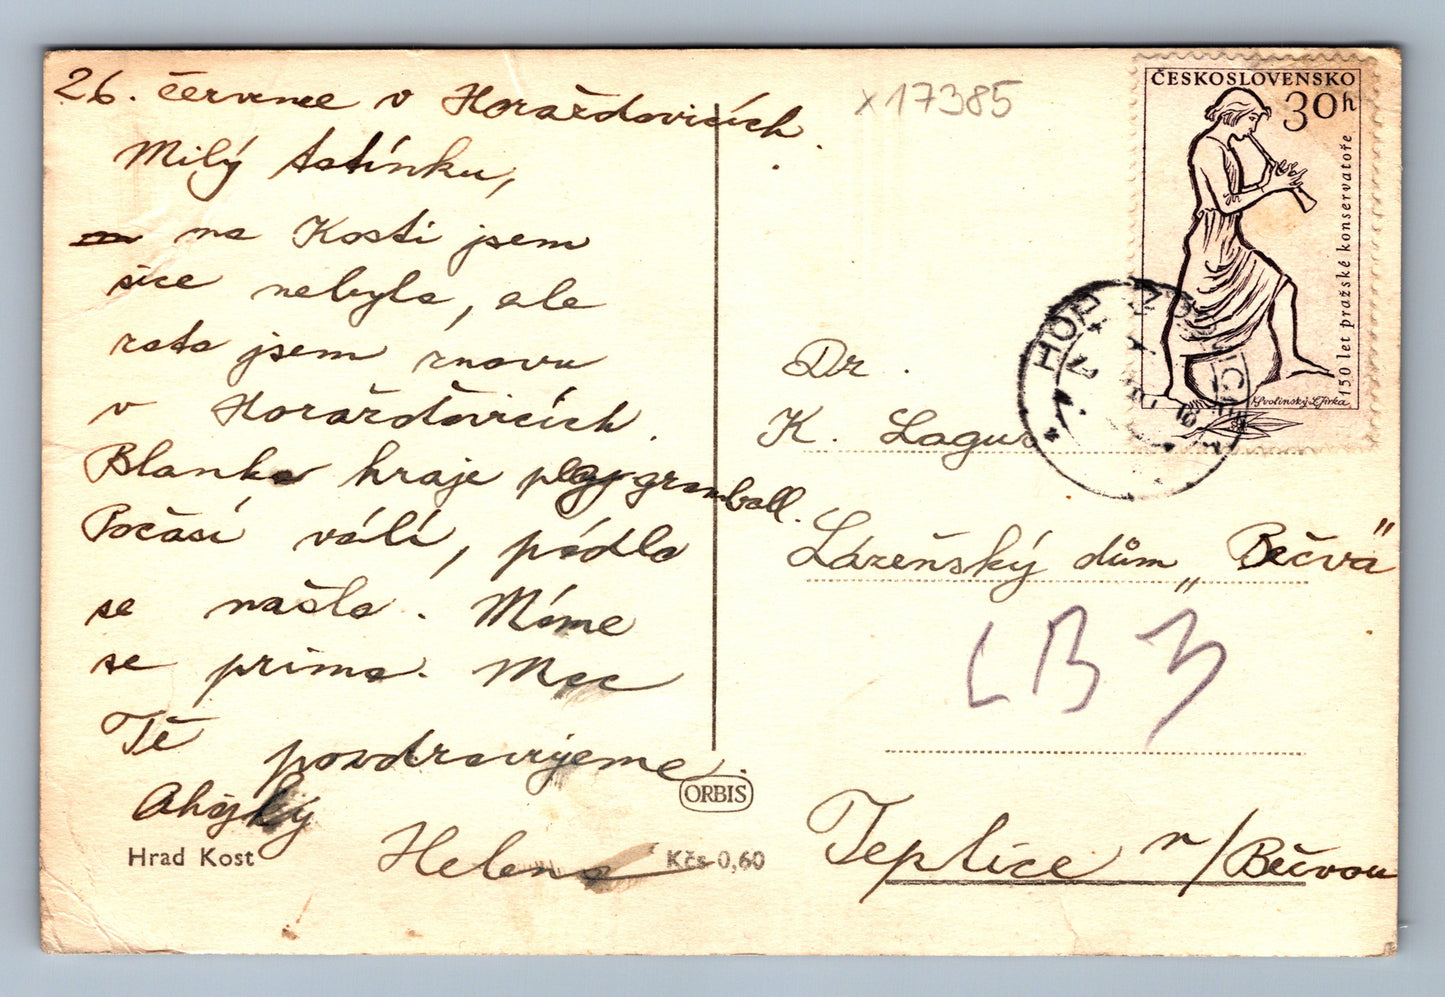 26. červenec v Horažďovicích.
Milý tatínku,
na Kosti jsem
sice nebyla, ale
zato jsem znovu
v Horažďovicích.
Blanka hraje gramball.
Počasí válí, pádla
se našla. Máme
se prima. Moc
Tě pozdravujeme.
Ahojky
Helena
Hrad Kost
ORBIS
Kčs 0,60
x17385
ČESKOSLOVENSKO
30h
150 let pražské konservatoře
K.Svolinský L.Jirka
Dr.
K. Lagus
Lázeňský dům „Bečva"
LB 3
Teplice n/Bečvou